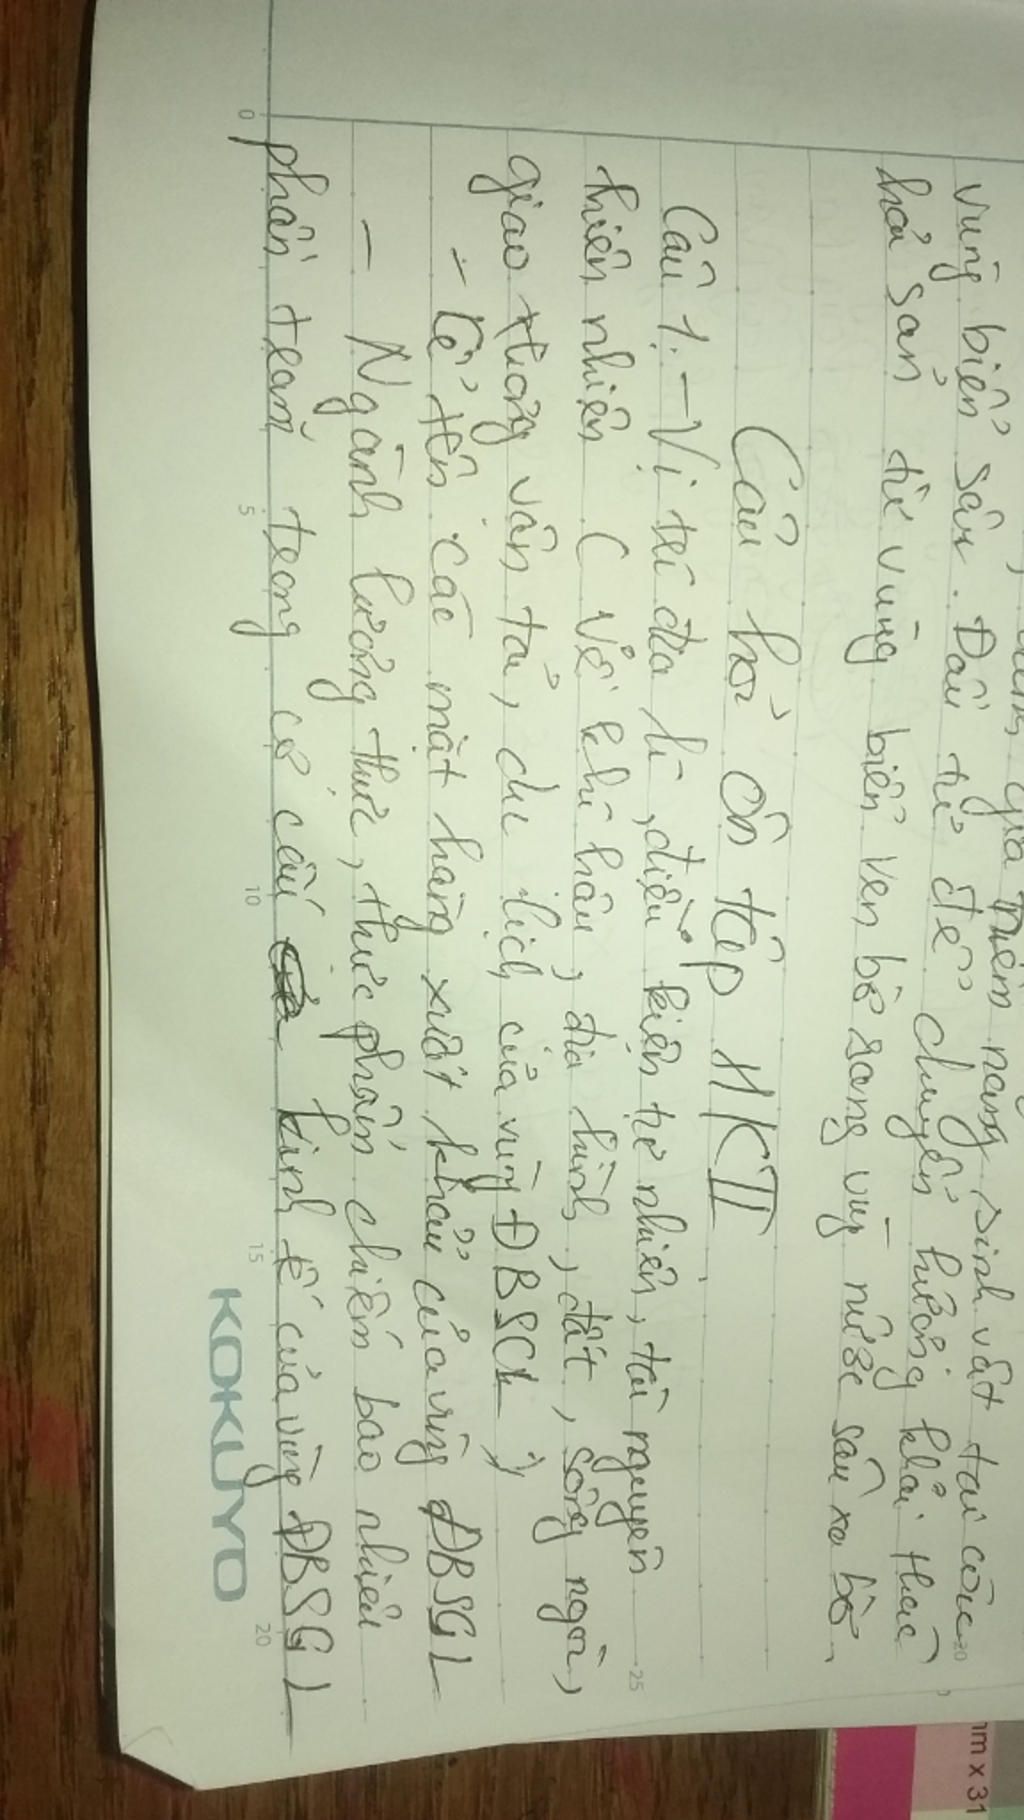 vùng biển sâu. Đầu tư để chuyển hướng khai thác
hải sản từ vùng biển ven bờ sang vùng nước sâu xa bờ.
Câu hỏi ôn tập HKII
Câu 1. - Vị trí địa lí, điều kiện tự nhiên, tài nguyên
thiên nhiên ( Về khí hậu, địa hình, đất, sông ngòi,
giao thông vận tải, du lịch của vùng ĐBSCL )
- Kể tên các mặt hàng xuất khẩu của vùng ĐBSCL
- Ngành lương thực, thực phẩm chiếm bao nhiêu
phần trăm trong cơ cấu kinh tế của vùng ĐBSCL
0 5 10 15 20
KOKUYO
25